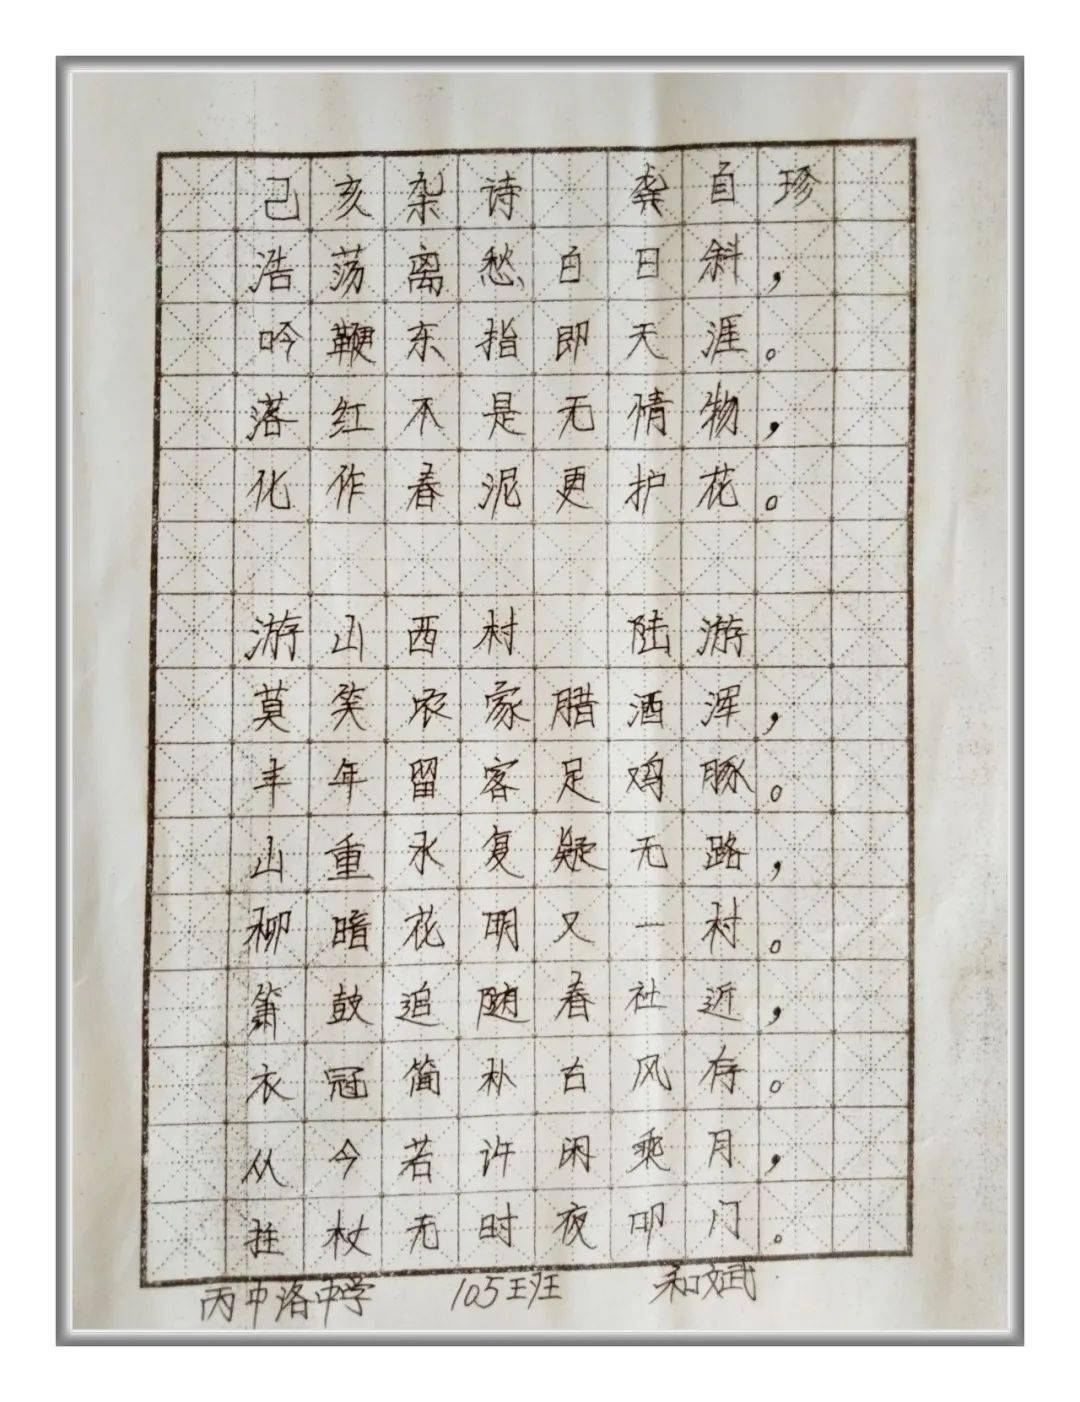 己亥杂诗 龚自珍
浩荡离愁白日斜，
吟鞭东指即天涯。
落红不是无情物，
化作春泥更护花。
游山西村 陆游
莫笑农家腊酒浑，
丰年留客足鸡豚。
山重水复疑无路，
柳暗花明又一村。
箫鼓追随春社近，
衣冠简朴古风存。
从今若许闲乘月，
拄杖无时夜叩门。
丙中洛中学 105班 和文武